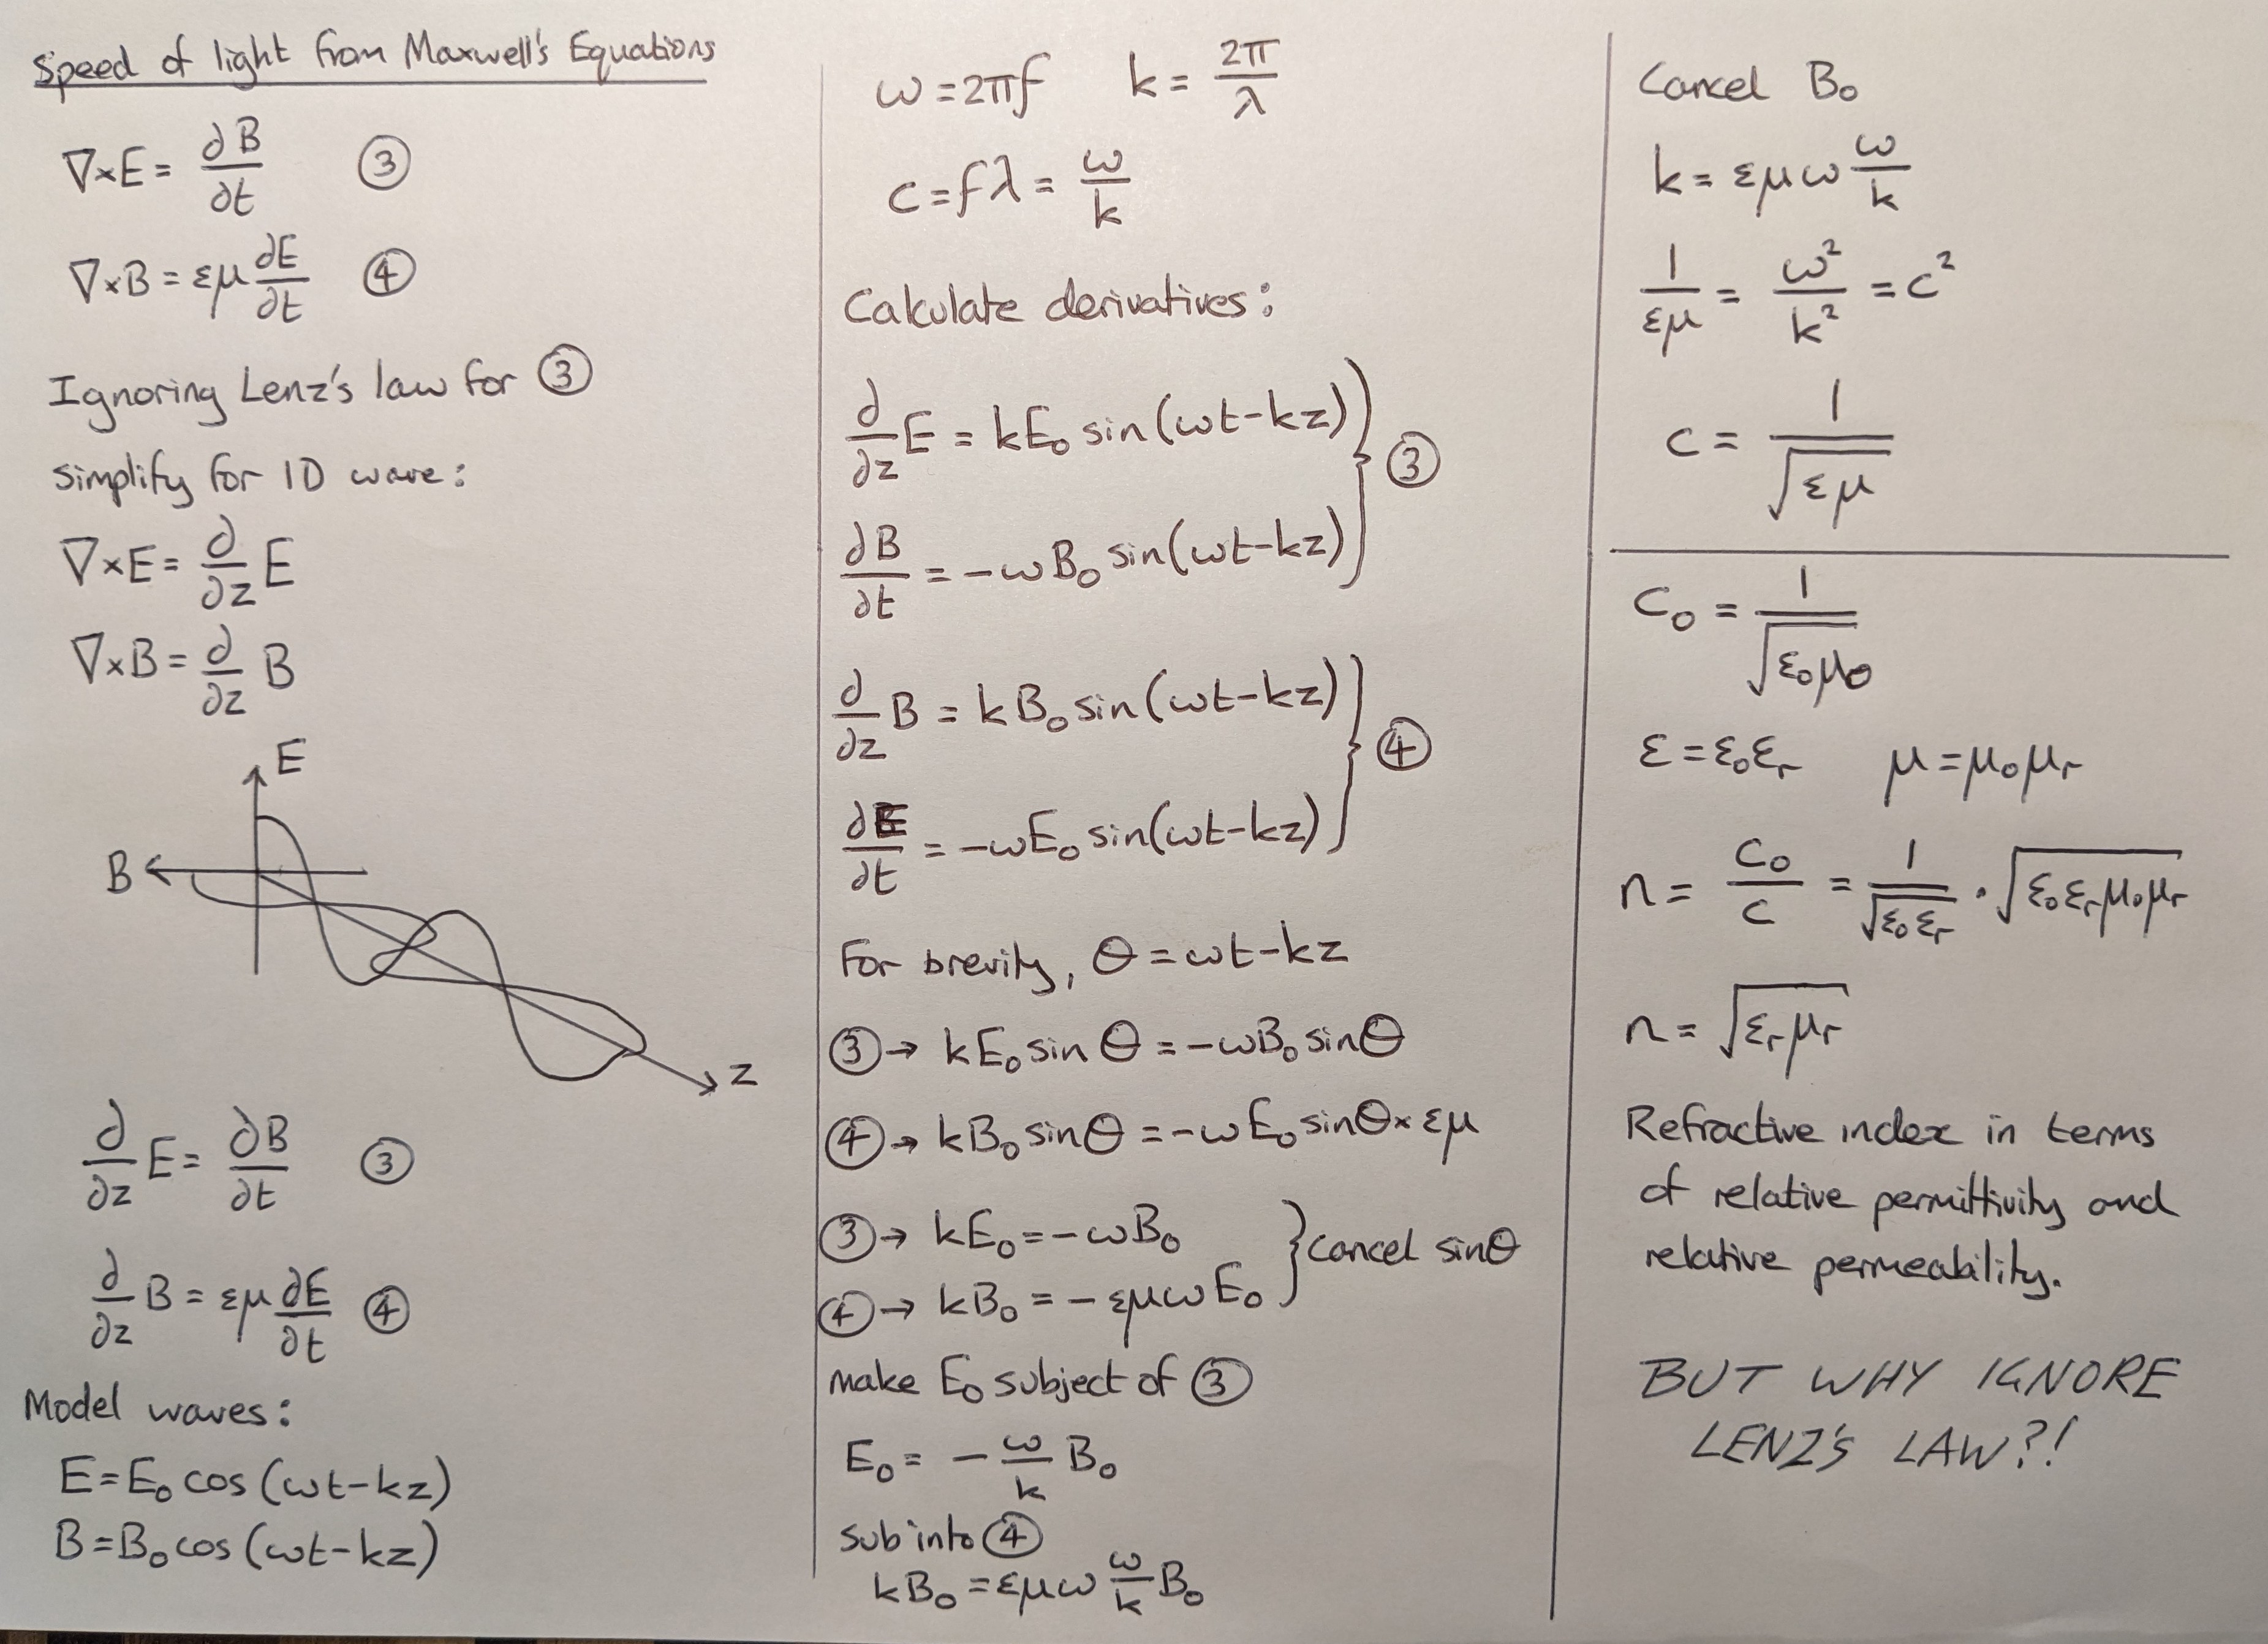 Speed of light from Maxwell's Equations
∇×E = ∂B/∂t ③
∇×B = εμ ∂E/∂t ④
Ignoring Lenz's law for ③
Simplify for 1D wave:
∇×E = ∂/∂z E
∇×B = ∂/∂z B
E
B
z
∂/∂z E = ∂B/∂t ③
∂/∂z B = εμ ∂E/∂t ④
Model waves:
E = E₀ cos (ωt-kz)
B = B₀ cos (ωt-kz)
ω = 2πf k = 2π/λ
c = fλ = ω/k
Calculate derivatives:
∂/∂z E = kE₀ sin (ωt-kz)
∂B/∂t = -ωB₀ sin(ωt-kz)
③
∂/∂z B = kB₀ sin (ωt-kz)
∂E/∂t = -ωE₀ sin(ωt-kz)
④
For brevity, θ = ωt-kz
③→ kE₀ sin θ = -ωB₀ sinθ
④→ kB₀ sinθ = -ωE₀ sinθ × εμ
③→ kE₀ = -ωB₀
④→ kB₀ = -εμωE₀
cancel sinθ
make E₀ subject of ③
E₀ = - ω/k B₀
sub into ④
kB₀ = εμω ω/k B₀
Cancel B₀
k = εμω ω/k
1/εμ = ω²/k² = c²
c = 1/√εμ
c₀ = 1/√ε₀μ₀
ε = ε₀εᵣ μ = μ₀μᵣ
n = c₀/c = 1/√ε₀εᵣ · √ε₀εᵣμ₀μᵣ
n = √εᵣμᵣ
Refractive index in terms
of relative permittivity and
relative permeability.
BUT WHY IGNORE
LENZ'S LAW?!